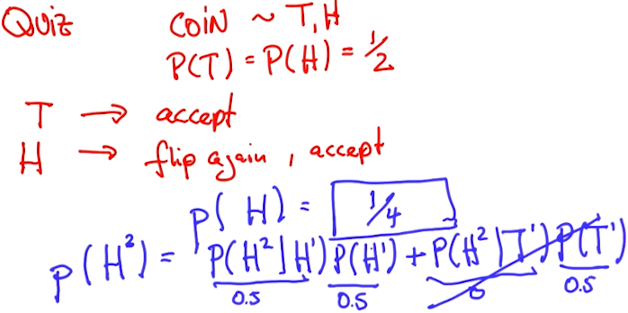 Quiz COIN ~ T,H
P(T) = P(H) = 1/2
T → accept
H → flip again, accept
P(H) = 1/4
P(H²) = P(H²|H¹)P(H¹) + P(H²|T¹)P(T¹)
0.5 0.5 0 0.5